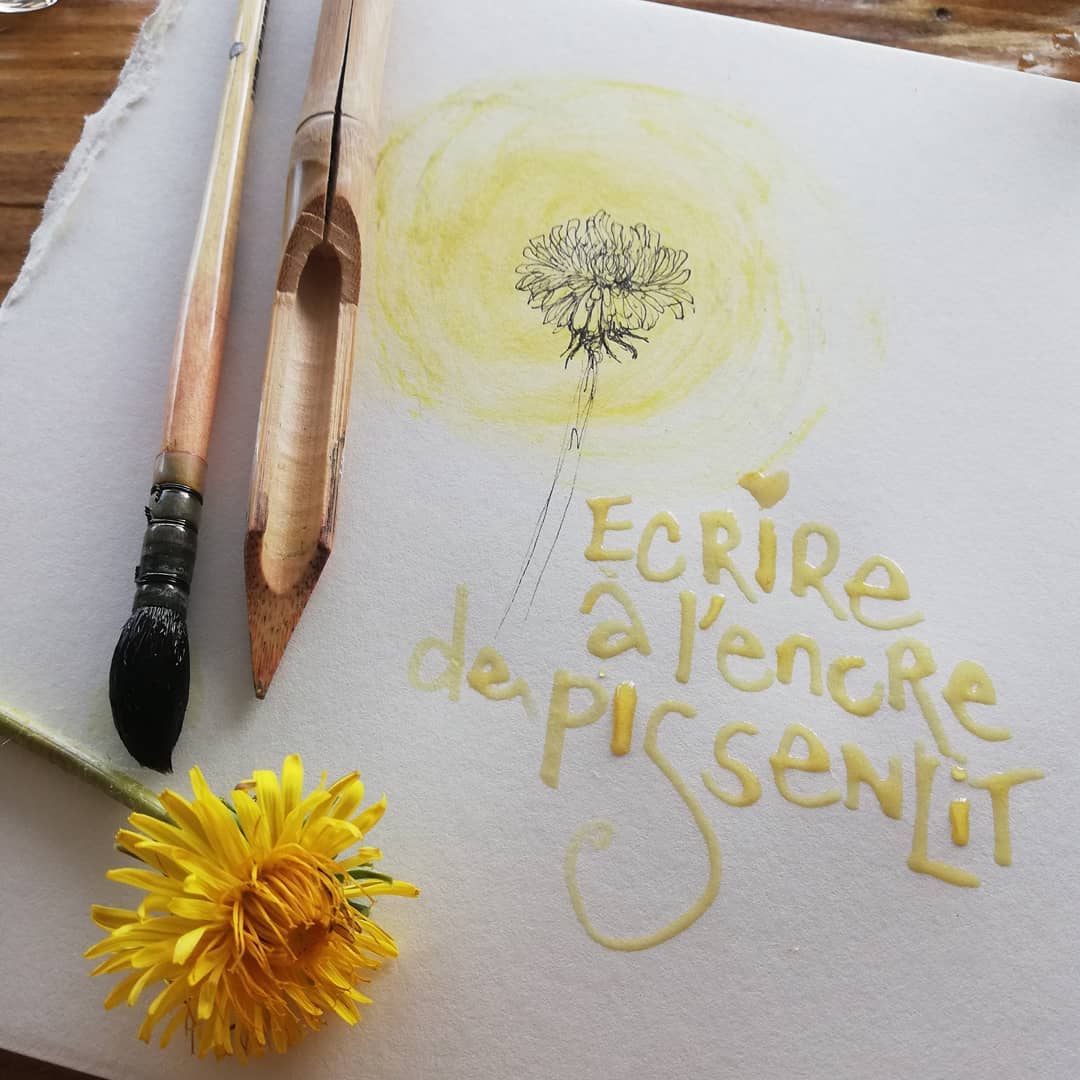 Ecrire
à l'encre
de pissenLiT